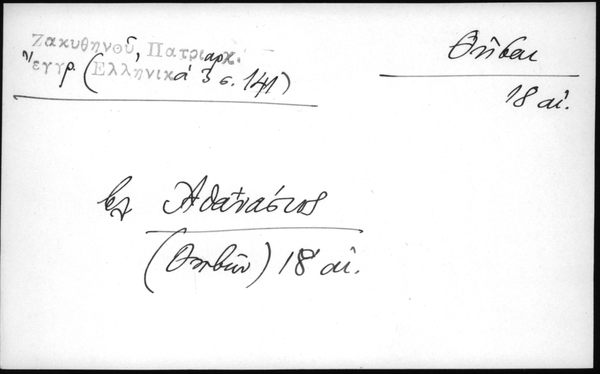 Ζακυθηνοῦ, Πατριαρχ.
ἔγγρ. (Ἑλληνικά 3 σ. 141)
Θῆβαι
18 αἰ.
Ἀθανάσιος
(Θηβῶν) 18 αἰ.